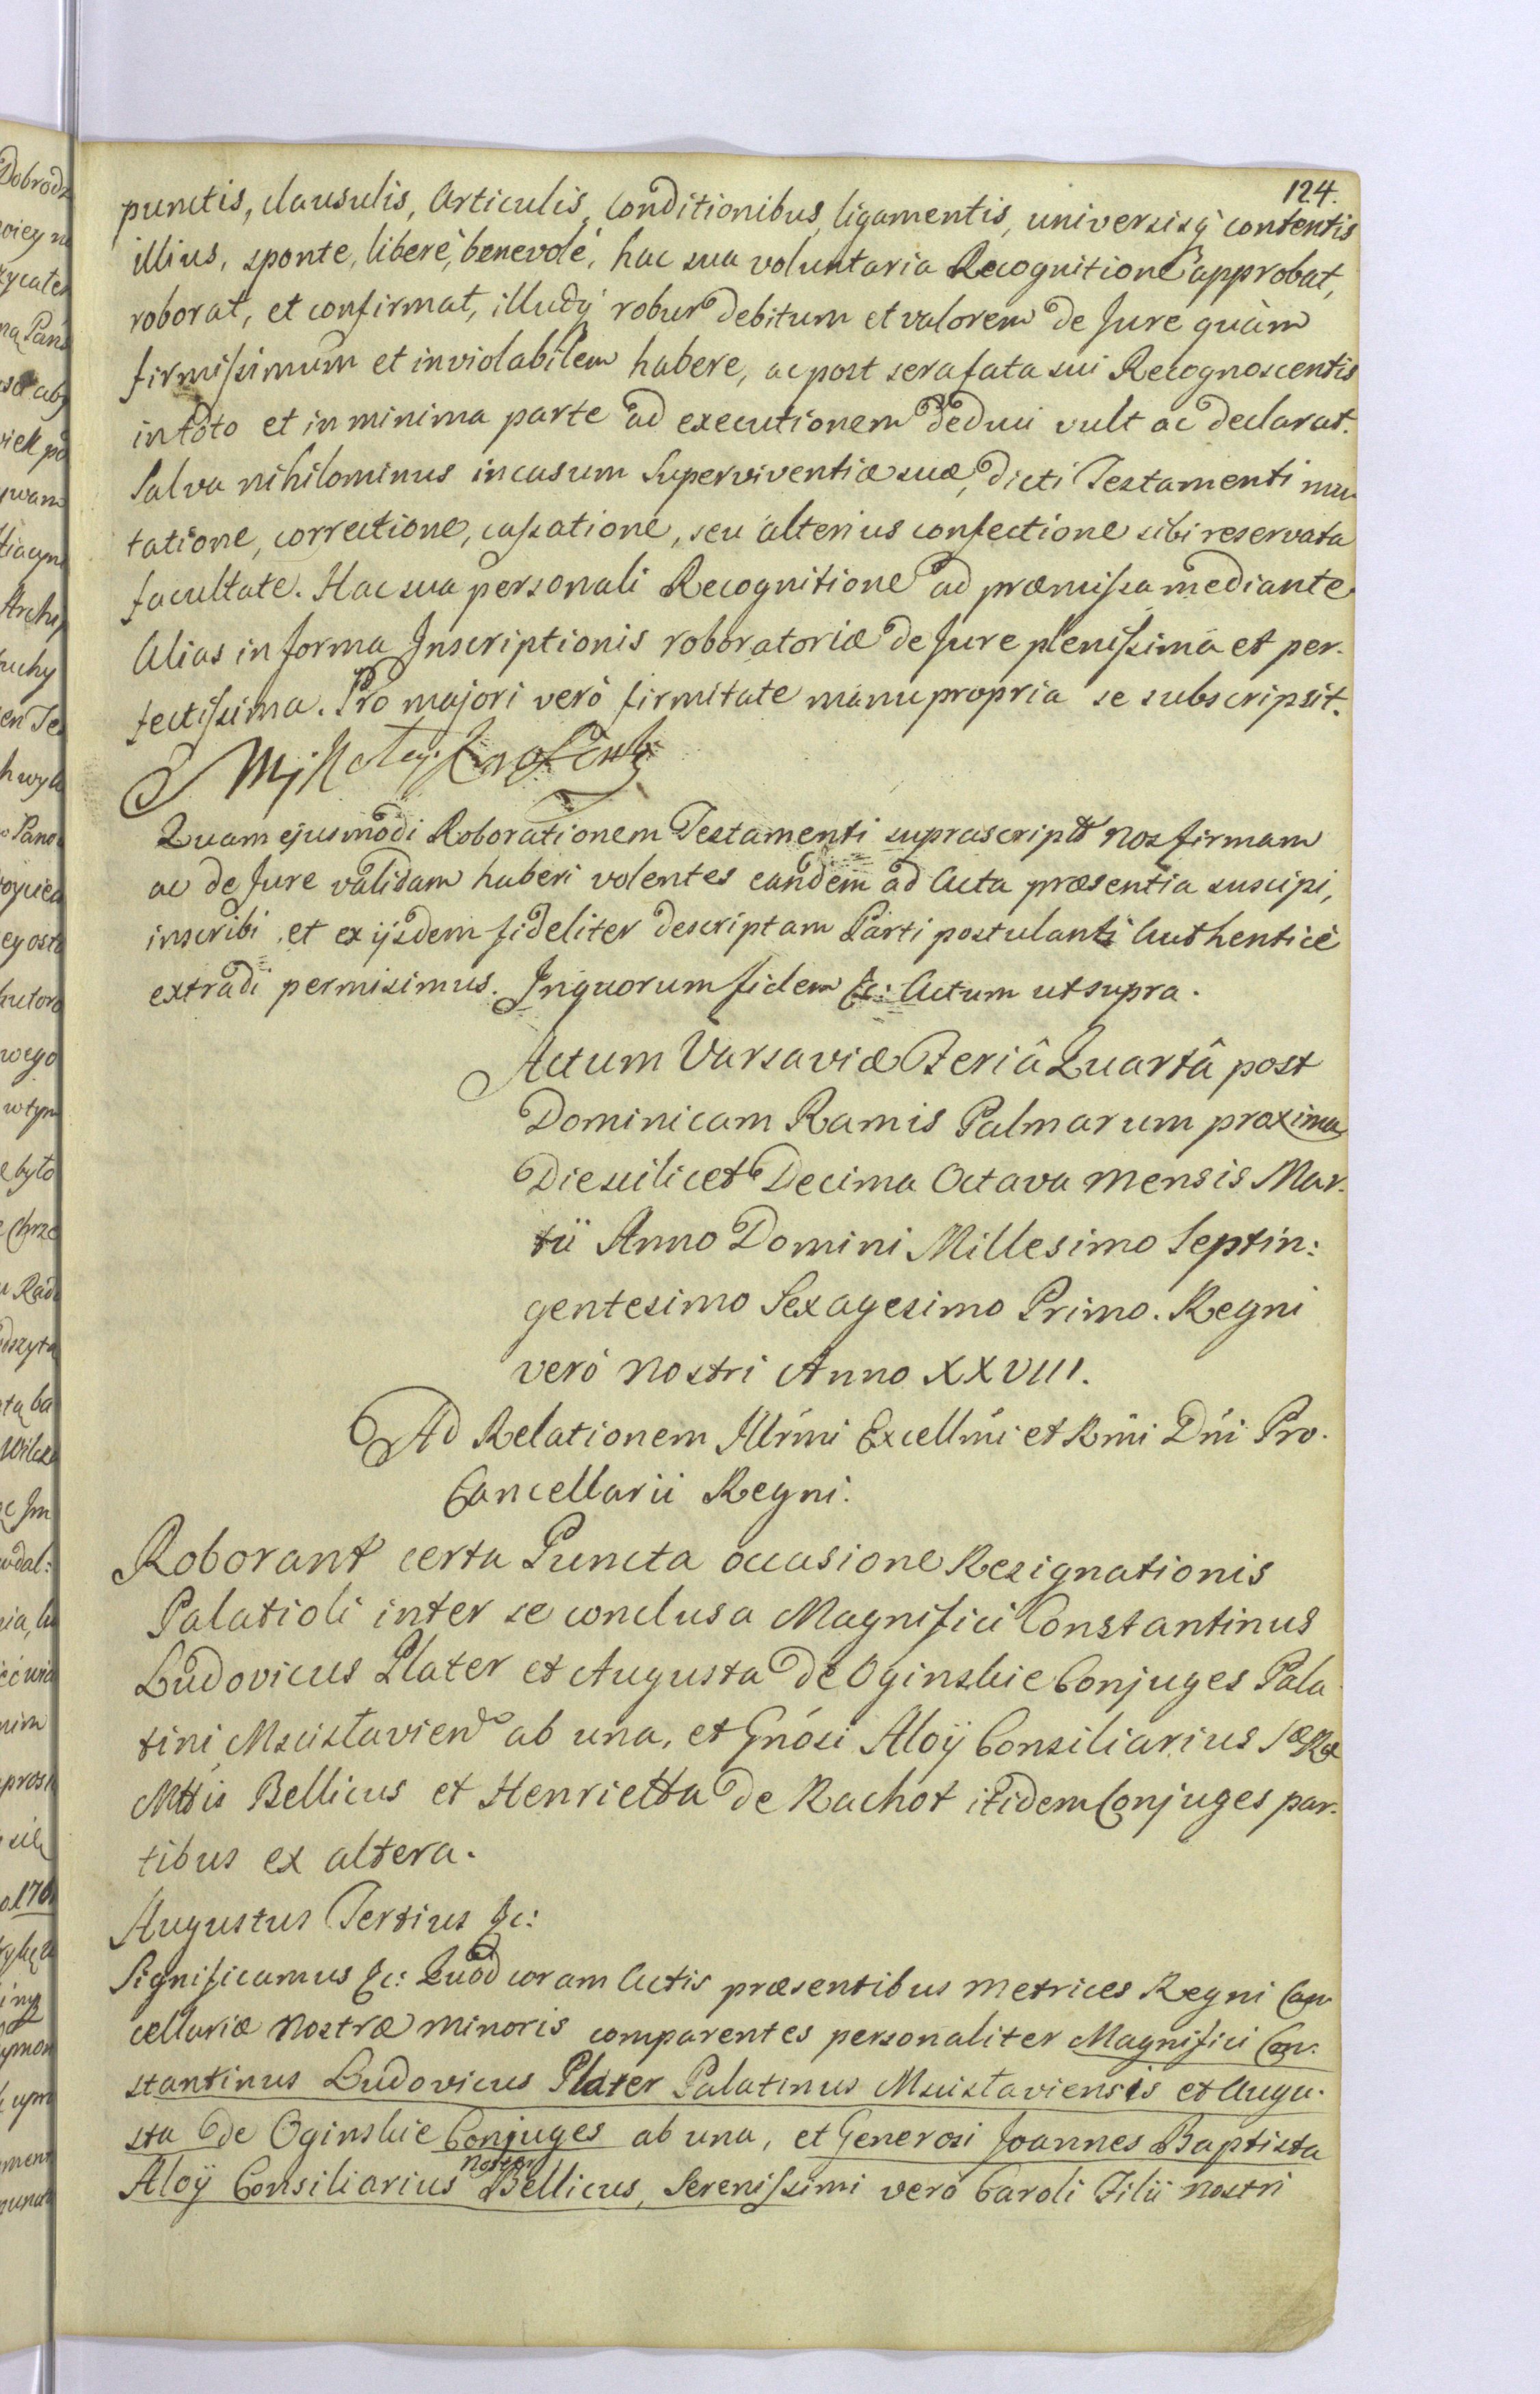 124.
punctis, clausulis, Articulis, Conditionibus, ligamentis, universisq́ contentis
illius, sponte, liberè, benevolè, hac sua voluntaria Recognitione approbat,
roborat, et confirmat, illudq́ robur debitum et valorem de Jure quàm
firmissimum et inviolabilem habere, ac post sera fata sui Recognoscentis
in toto et in minima parte ad executionem deduci vult ac declarat.
Salva nihilominus in casum Superviventiæ suæ, dicti Testamenti mu
tatione, correctione, cassatione, seu alterius confectione sibi reservata
facultate. Hac sua personali Recognitione ad præmissa mediante
Alias in forma Inscriptionis roboratoriæ de Jure plenissima et per-
fectissima. Pro majori verò firmitate manu propria se subscripsit.
Quam ejusmodi Roborationem Testamenti suprascripti Nos firmam
ac de Jure validam haberi volentes eandem ad Acta præsentia suscipi,
inscribi et ex ijsdem fideliter descriptam Parti postulanti Authenticè
extradi permisimus. In quorum fidem &c: Actum ut supra.
Actum Varsaviæ Feriâ Quartâ post
Dominicam Ramis Palmarum proxima
Die scilicet Decima Octava Mensis Mar-
tii Anno Domini Millesimo Septin:
gentesimo Sexagesimo Primo. Regni
verò Nostri Anno XXVIII.
Ad Relationem Illrmi Excellmi et Rmi Dni Pro-
Cancellarii Regni.
Roborant certa Puncta occasione Resignationis
Palatioli inter se conclusa Magnifici Constantinus
Ludovicus Plater et Augusta de Oginskie Conjuges Pala
tini Mscislavien ab una, et Gnosi Aloÿ Consiliarius Sæ Ræ
Mttis Bellicus et Henrietta de Rachot itidem Conjuges par-
tibus ex altera.
Augustus Tertius &c:
Significamus &c: Quod coram Actis præsentibus Metrices Regni Can
cellariæ Nostræ Minoris comparentes personaliter Magnifici Con:
stantinus Ludovicus Plater Palatinus Mscislaviensis et Augu-
sta de Oginskie Conjuges ab una, et Generosi Joannes Baptista
Aloÿ Consiliarius Noster Bellicus, Serenissimi verò Caroli Filii Nostri